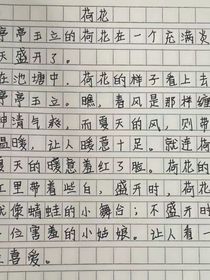 荷花
亭亭玉立的荷花在一个充满炎
天盛开了。
在池塘中，荷花的样子看上去
亭亭玉立。瞧，春风是那样缠
神清气爽，而夏天的风，则带
温暖，让人暖意十足。就连荷
夏天的暖意羞红了脸。荷花的
红里带着些白，盛开时，荷花
就像蜻蛙的小舞台；不盛开时
一位害羞的小姑娘。让人看一
生喜爱。